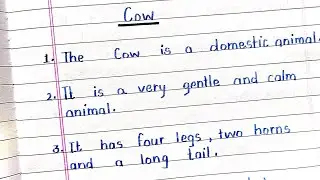 Cow
1. The Cow is a domestic animal.
2. It is a very gentle and calm
animal.
3. It has four legs, two horns
and a long tail.